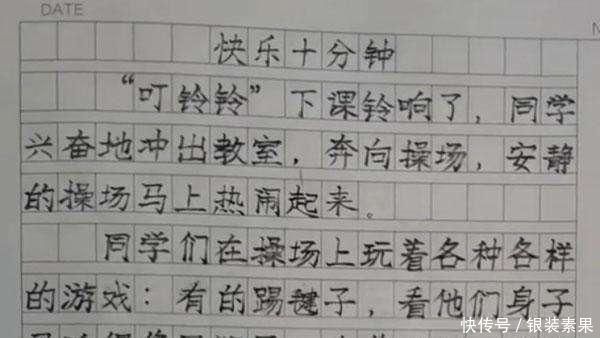 DATE
快乐十分钟
“叮铃铃”下课铃响了，同学
兴奋地冲出教室，奔向操场，安静
的操场马上热闹起来。
同学们在操场上玩着各种各样
的游戏：有的踢毽子，看他们身子
快传号／银装素果